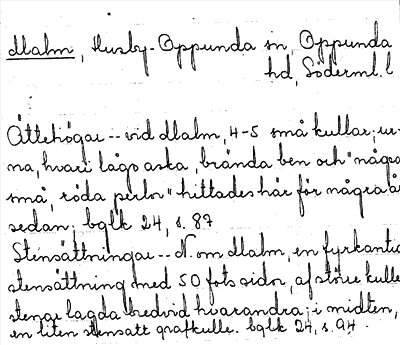 Malm, Husby-Oppunda sn, Oppunda
hd, Söderml. l
Ättehögar -- vid Malm, 4-5 små kullar; ur-
na, hvari lågo aska, brända ben och "några
små, röda perlor" hittades här för några år
sedan. bglk 24, s. 87
Stensättningar -- N. om Malm, en fyrkantig
stensättning med 50 fots sidor, af större kuller-
stenar lagda bredvid hvarandra; i midten,
en liten stensatt grafkulle. bglk 24, s. 94.